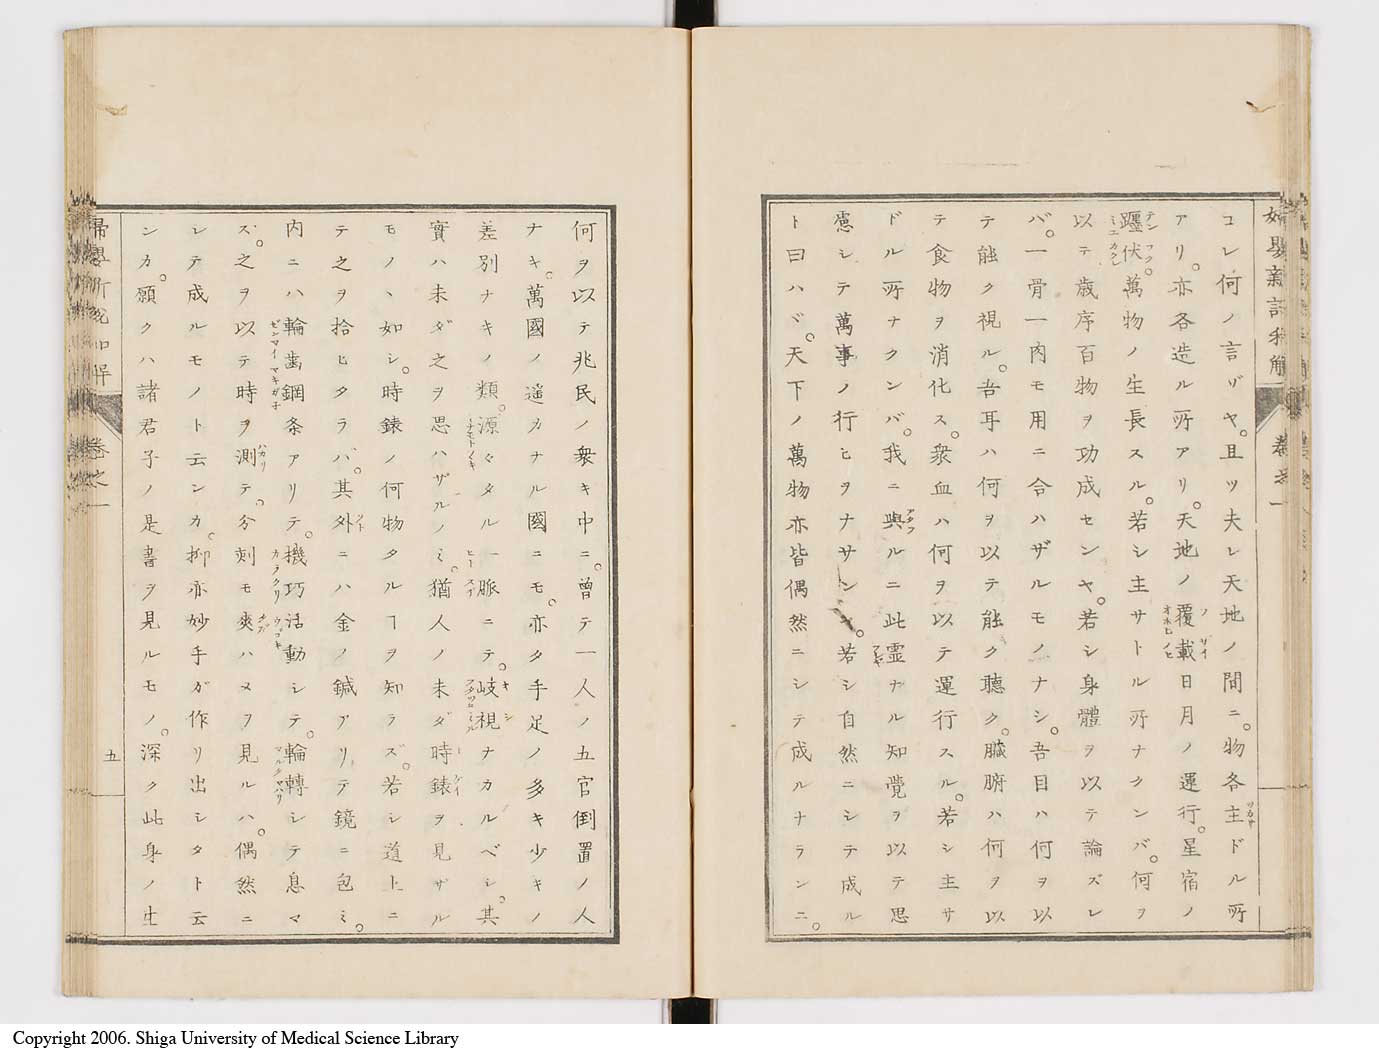 コレ何ノ言ゾヤ。且ツ夫レ天地ノ間ニ。物各主ドル所
アリ。亦各造ル所アリ。天地ノ覆載日月ノ運行。星宿ノ
躔伏。萬物ノ生長スル。若シ主サトル所ナクンバ。何ヲ
以テ歳序百物ヲ功成センヤ。若シ身體ヲ以テ論ズレ
バ。一骨一肉モ用ニ合ハザルモノナシ。吾目ハ何ヲ以
テ能ク視ル。吾耳ハ何ヲ以テ能ク聽ク。臓腑ハ何ヲ以
テ食物ヲ消化ス。衆血ハ何ヲ以テ運行スル。若シ主サ
ドル所ナクンバ。我ニ與ルニ此霊ナル知覺ヲ以テ思
慮シテ萬事ノ行ヒヲナサンヤ。若シ自然ニシテ成ル
ト曰ハヾ。天下ノ萬物亦皆偶然ニシテ成ルナランニ。
何ヲ以テ兆民ノ衆キ中ニ。曾テ一人ノ五官倒置ノ人
ナキ。萬國ノ遥カナル國ニモ。亦タ手足ノ多キ少キノ
差別ナキノ類。源々タル一脈ニテ。岐視ナカルベシ。其
實ハ未ダ之ヲ思ハザルノミ。猶人ノ未ダ時錶ヲ見ザル
モノヽ如シ。時錶ノ何物タルヿヲ知ラズ。若シ道上ニ
テ之ヲ拾ヒタラバ。其外ニハ金ノ鍼アリテ鏡ニ包ミ。
内ニハ輪齒鋼条アリテ。機巧活動シテ。輪轉シテ息マ
ズ。之ヲ以テ時ヲ測テ。分刻モ爽ハヌヲ見ルハ。偶然ニ
シテ成ルモノト云ンカ。抑亦妙手ガ作リ出シタト云
ンカ。願クハ諸君子ノ是書ヲ見ルモノ。深ク此身ノ生
卷之一
五
Copyright 2006. Shiga University of Medical Science Library